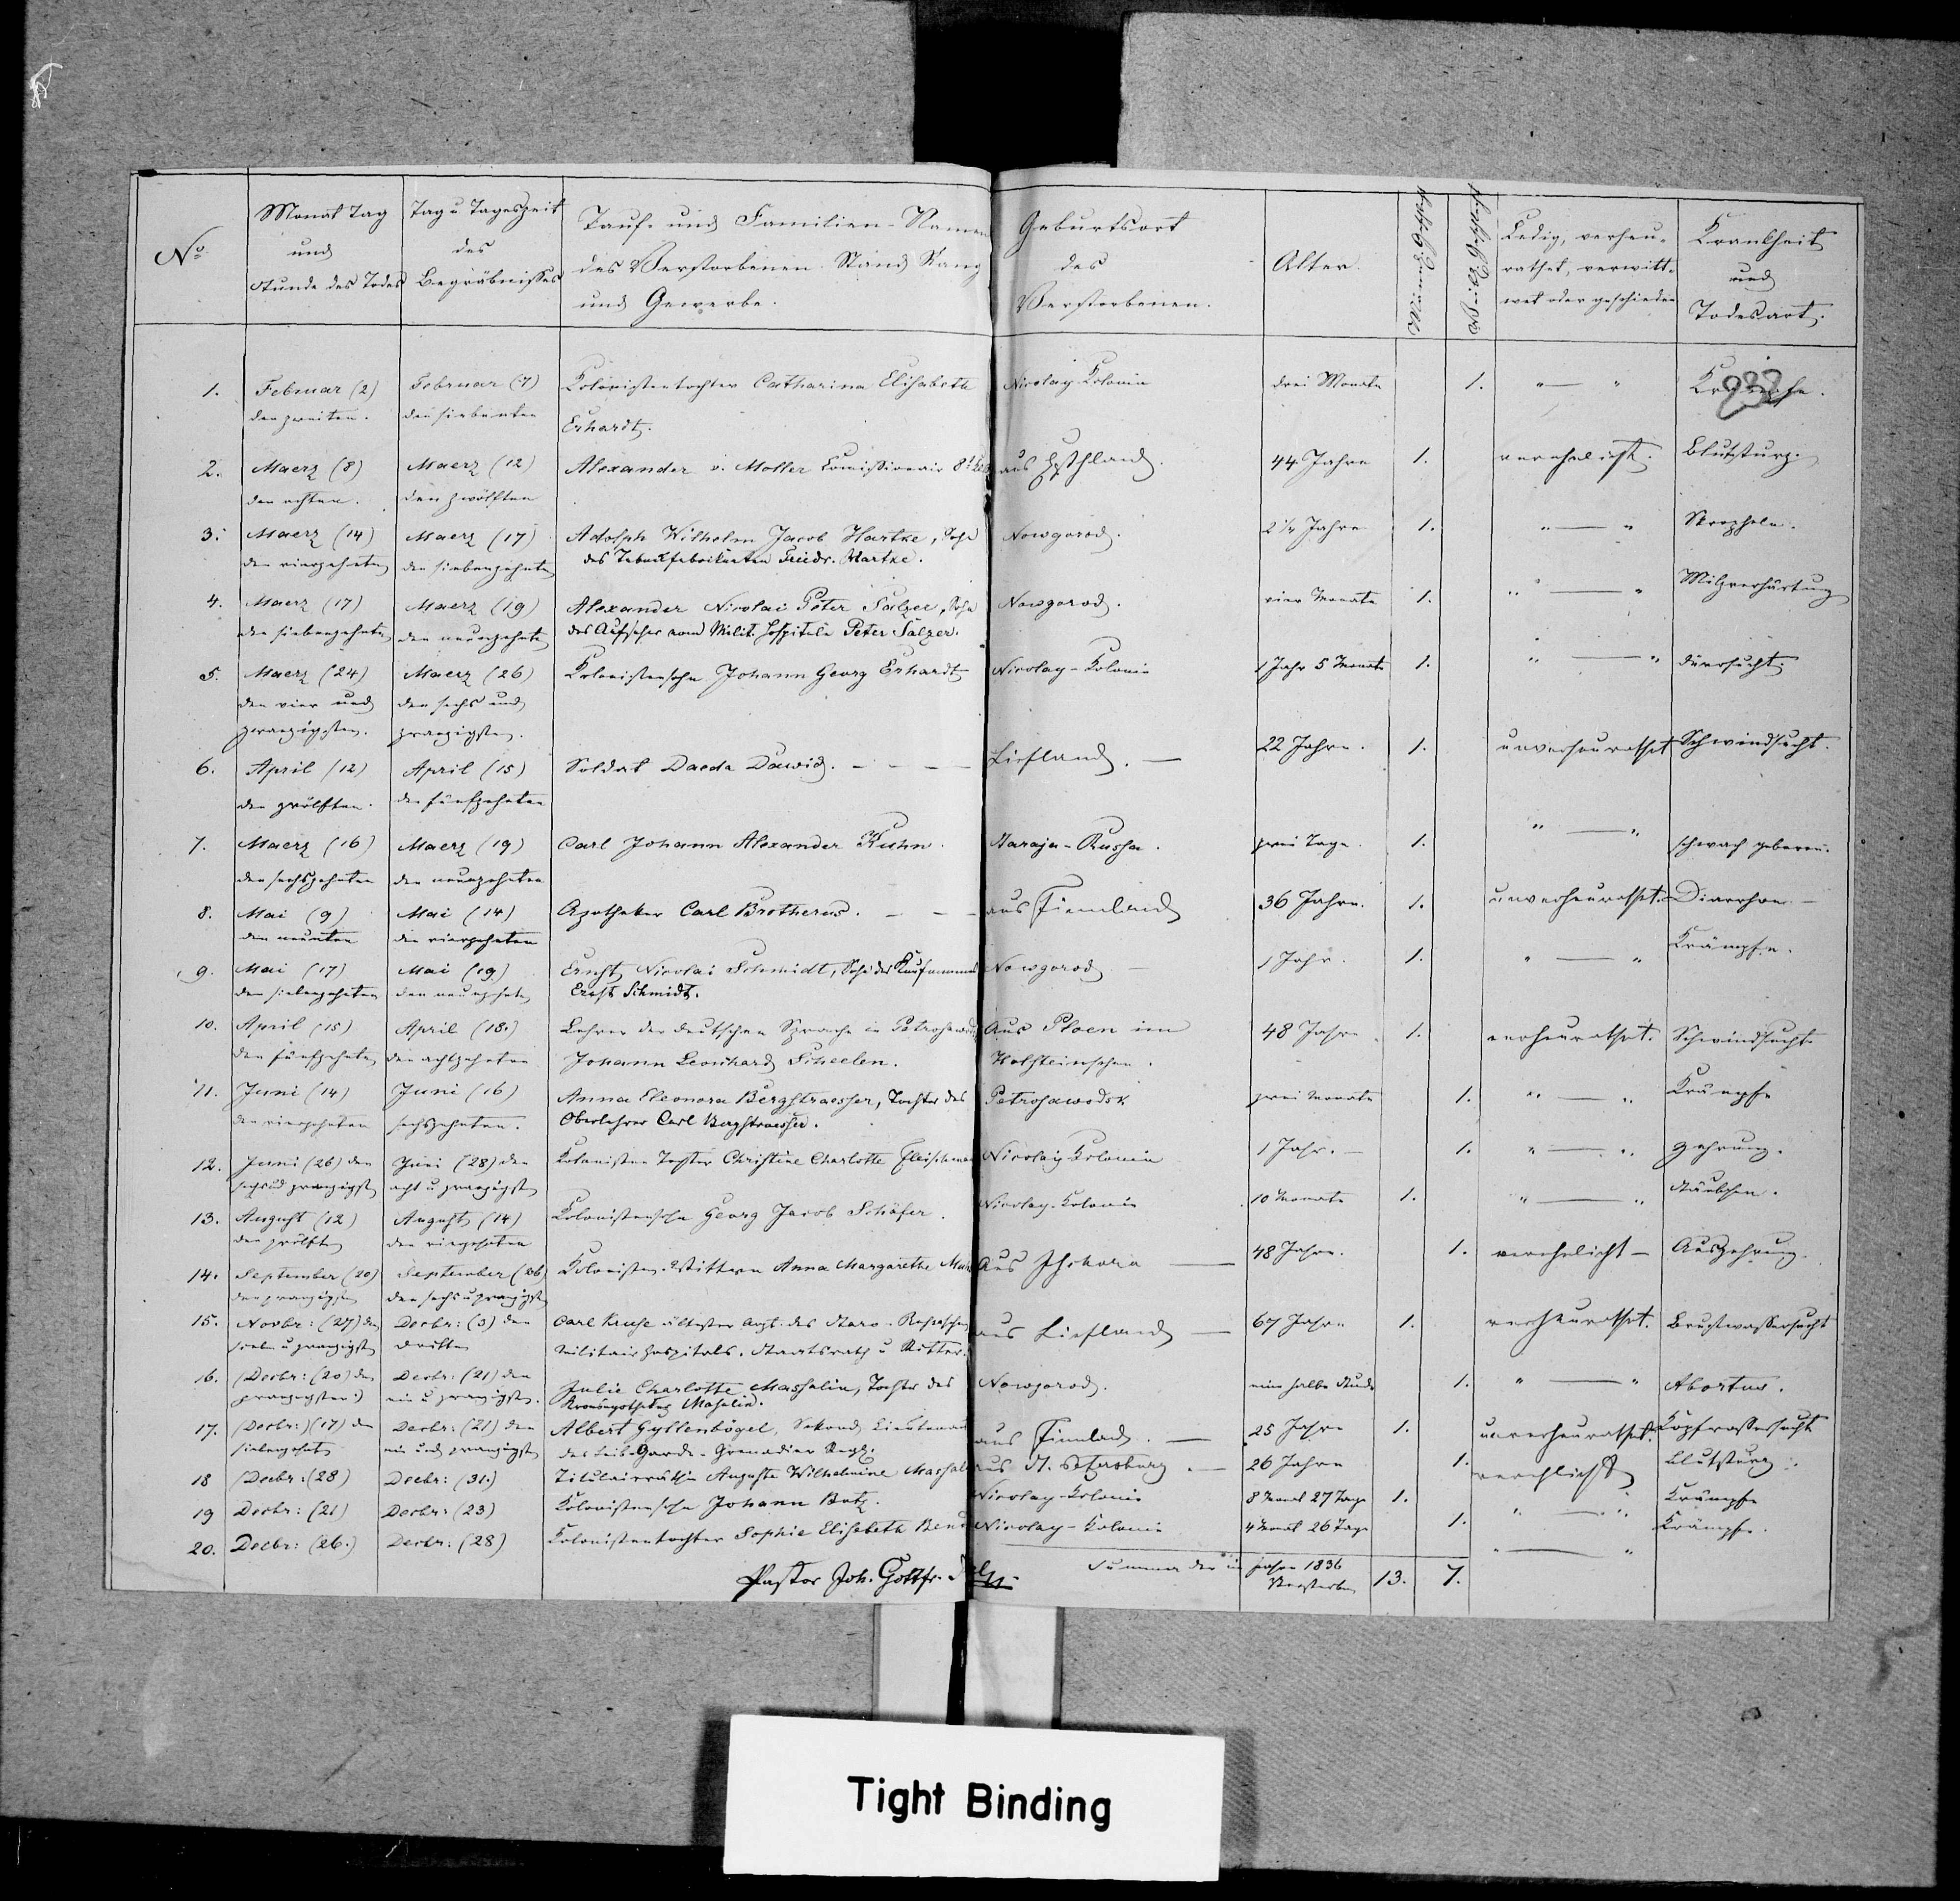 No.
Monat Tag und Stunde des Todes
Tag u Tageszeit des Begräbnisses
Tauf- und Familien-Namen des Verstorbenen. Stand Rang und Gewerbe.
Geburtsort des Verstorbenen.
Alter.
Männl: Geschlecht
Weibl: Geschlecht
Ledig, verheurathet, verwittwet oder geschieden
Krankheit und Todesart.
1. Februar (2) Februar (7) Colonistentochter Catharina Elisabeth Nicolay Kolonie drei Monate 1. " — " Krämpfe.
den zweiten. den siebenten Erhardt.
2. Maerz (8) Maerz (12) Alexander v. Moller Comissionair 8t aus Ehstland. 44 Jahre 1. verehelicht. Blutsturz.
den achten. den zwölften
3. Maerz (14) Maerz (17) Adolph Wilhelm Jacob Hartke, Sohn Nowgorod. 2 1/2 Jahre 1. " — " Skropheln.
den vierzehnten den siebenzehnten des Tabacksfabrikanten Friedr. Hartke.
4. Maerz (17) Maerz (19) Alexander Nicolai Peter Salzer, Sohn Nowgorod. vier Monate 1. " — " Milzverhärtung
den siebenzehnten den neunzehnten des Aufsehers vom Milit. Hospitale Peter Salzer.
5. Maerz (24) Maerz (26) Kolonistensohn Johann Georg Erhardt Nicolay-Kolonie 1 Jahr 5 Monate 1. " — " Dürrsucht.
den vier und den sechs und
zwanzigsten. zwanzigsten.
6. April (12) April (15) Soldat Daeda Dawid. Liefland. 22 Jahre. 1. unverheurathet Schwindsucht.
den zwölften. den fünfzehnten
7. Maerz (16) Maerz (19) Carl Johann Alexander Kuhn. Staraja-Russa. zwei Tage. 1. " — " schwach geboren.
den sechszehnten den neunzehnten
8. Mai (9) Mai (14) Apotheker Carl Brotherus. aus Finnland 36 Jahre. 1. unverheurathet. Diarrhoe.
den neunten den vierzehnten
9. Mai (17) Mai (19) Ernst Nicolai Schmidt, Sohn des Kaufmannes Nowgorod 1 Jahr. 1. " — " Krämpfe.
den siebenzehnten den neunzehnten Ernst Schmidt.
10. April (15) April (18.) Lehrer der deutschen Sprache in Aus Ploen im 48 Jahre. 1. verheurathet. Schwindsucht
den fünfzehnten den achtzehnten Johann Leonhard Scheelen. Holsteinschen.
11. Juni (14) Juni (16) Anna Eleonora Bergstraesser, Tochter des Petrosawodsk zwei Monate 1. " — " Krämpfe
den vierzehnten sechszehnten. Oberlehrer Carl Bergstraesser.
12. Juni (26) den Juni (28) den Kolonisten Tochter Christine Charlotte Nicolay Kolonie 1 Jahr. 1. " — " Zehrung.
sechs und zwanzigst acht u zwanzigst
13. August (12) August (14) Kolonistensohn Georg Jacob Schäfer. Nicolay-Kolonie 10 Monate 1. " — "
den zwölften den vierzehnten
14. September (20) September (26) Kolonisten-Wittwe Anna Margarethe Aus Ischora 48 Jahre. 1. verehelicht — Auszehrung.
den zwanzigsten den sechs u zwanzigst
15. Novbr: (27) den Decbr: (3) den Carl Kruse ältester Arzt des Staro-Russaschen aus Liefland 67 Jahre 1. verheurathet. Brustwassersucht
sieben u zwanzigst dritten Militair Hospitals. Staatsrath u Ritter.
16. (Decbr: (20) den Decbr: (21) den Julie Charlotte Masshalin, Tochter des Nowgorod. eine halbe Stunde 1. " — " Abortus.
zwanzigsten) ein u zwanzigsten. Kronsapothekers
17. (Decbr:) (17) den Decbr: (21) den Albert Gyllenbögel, Sekond Lieutenant aus Finnland. 25 Jahre 1. unverheurathet. Kopfwassersucht
siebenzehnt ein und zwanzigsten des Leib-Garde-Grenadier Regt.
18 (Decbr: (28) Decbr: (31.) Titulairräthin Auguste Wilhelmine aus St. Petersburg. 26 Jahre 1. verehlicht Blutsturz.
19 Decbr: (21) Decbr: (23) Kolonistensohn Johann Butz. Nicolay-Kolonie 8 Monat 27 Tage 1. " — " Krämpfe
20. Decbr: (26.) Decbr: (28) Kolonistentochter Sophie Elisabeth Nicolay-Kolonie 4 Monat 26 Tage 1. " — " Krämpfe.
Pastor Joh. Gottfr.
Summa der im Jahre 1836 Verstorben 13. 7.
Tight Binding